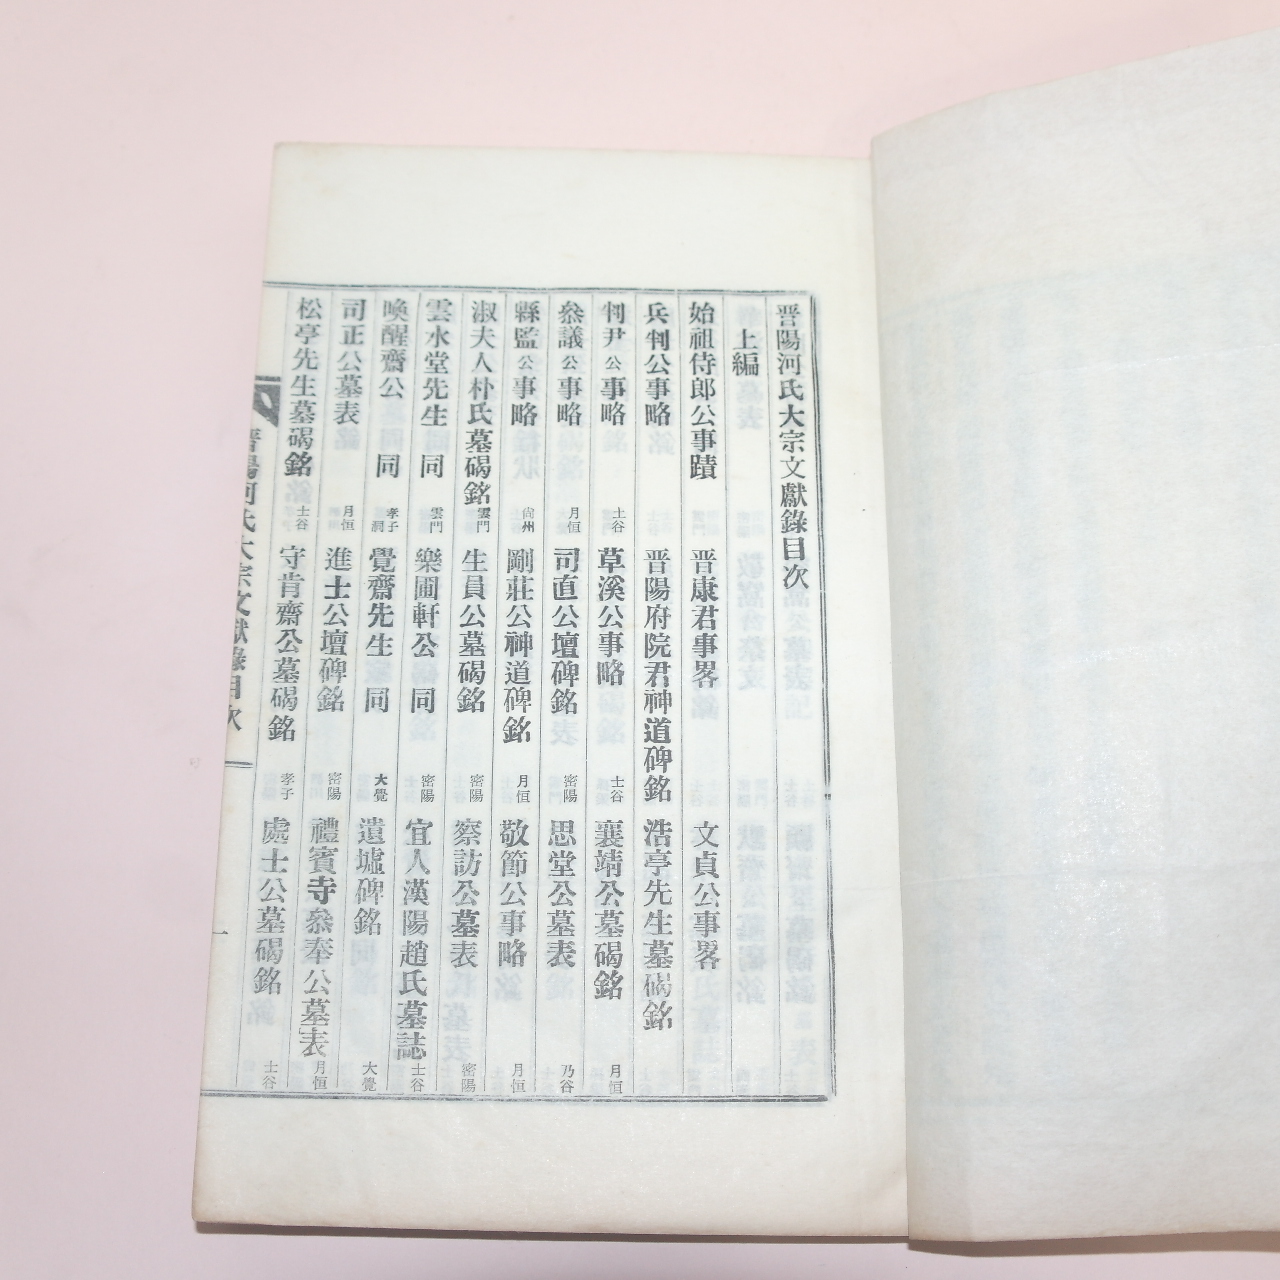 晋陽河氏大宗文獻錄目次
上編
始祖侍郎公事蹟 晋康君事畧 文貞公事畧
兵判公事略 晋陽府院君神道碑銘 浩亭先生墓碣銘
判尹公事略 士谷 草溪公事略 士谷 襄靖公墓碣銘 月恒
叅議公事略 月恒 司直公壇碑銘 密陽 思堂公墓表 乃谷
縣監公事略 尙州 剛莊公神道碑銘 月恒 敬節公事略 月恒
淑夫人朴氏墓碣銘 雲門 生員公墓碣銘 密陽 察訪公墓表 密陽
雲水堂先生 同 雲門 樂圃軒公 同 密陽 宜人漢陽趙氏墓誌 士谷
喚醒齋公 同 孝子洞 覺齋先生 同 大覺 遺墟碑銘 大覺
司正公墓表 月恒 進士公壇碑銘 密陽 禮賓寺叅奉公墓表 月恒
松亭先生墓碣銘 士谷 守肯齋公墓碣銘 孝子 處士公墓碣銘 士谷
晋陽河氏大宗文獻錄目次 一